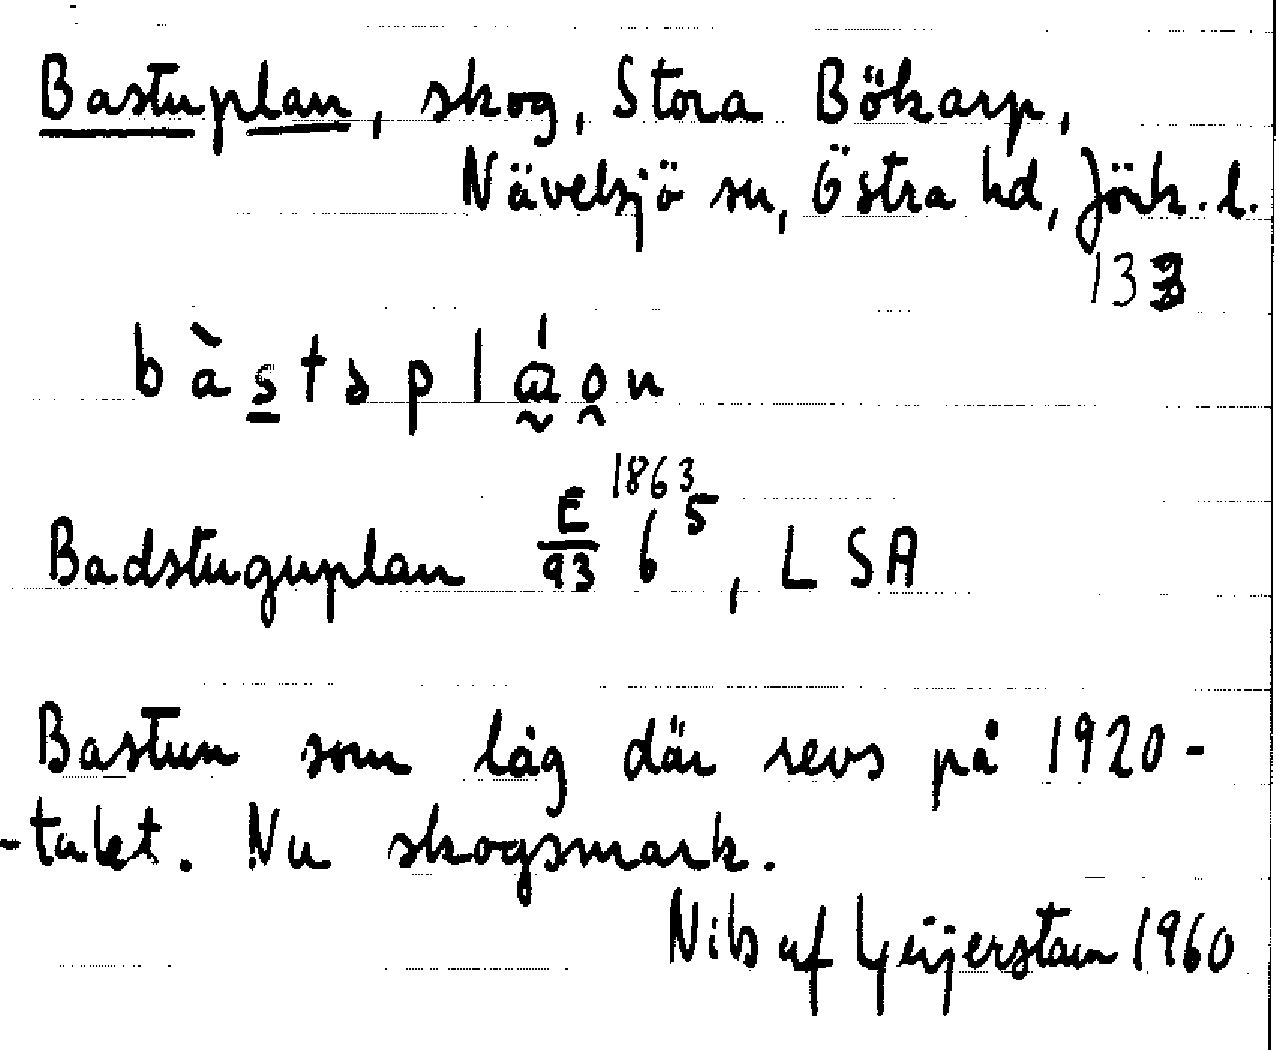 Bastuplan, skog, Stora Bökarp,
Nävelsjö sn, Östra hd, Jönk. l.
133
Badstuguplan E/93 6⁵ 1863, LSA
Bastun som låg där revs på 1920-
-talet. Nu skogsmark.
Nils af Geijerstam 1960